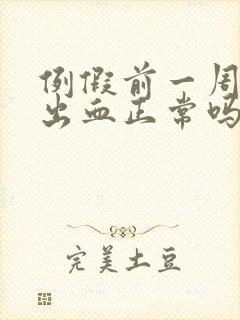 例假前一周
出血正常吗
完美土豆